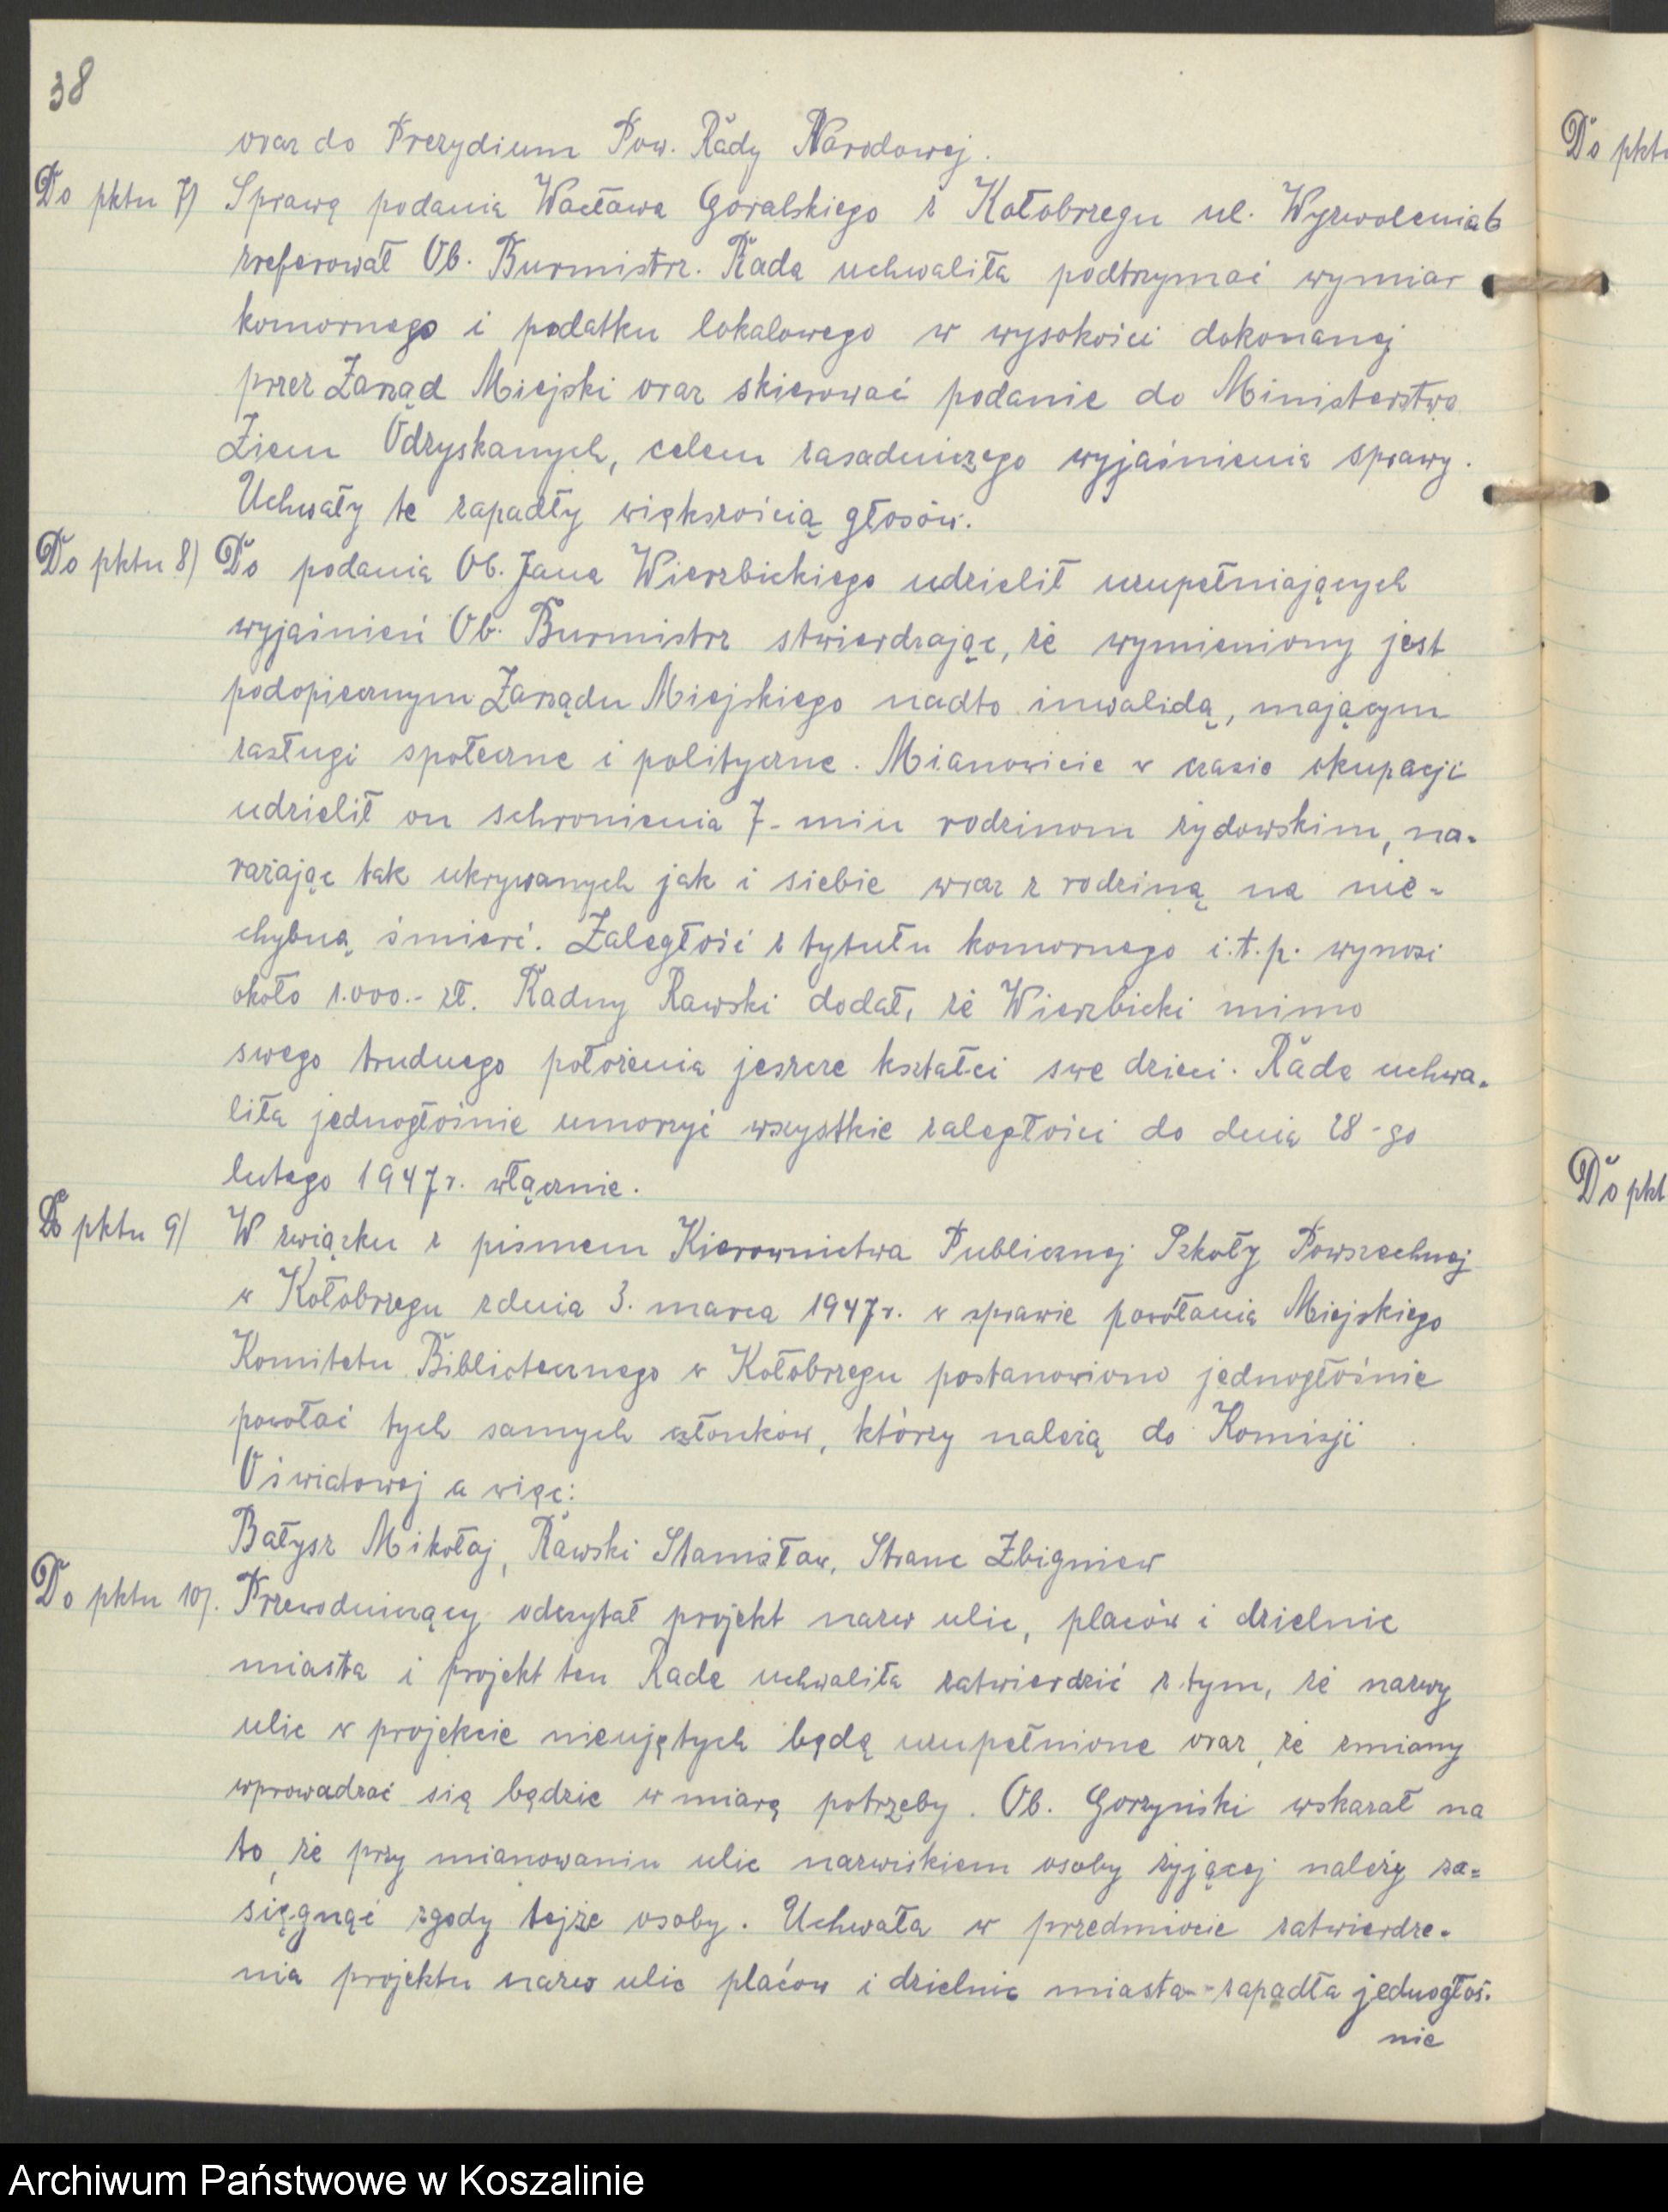 38
oraz do Prezydium Pow. Rady Narodowej.
Do pktu 7) Sprawę podania Wacława Goralskiego z Kołobrzegu ul. Wyzwolenia 6
zreferował Ob. Burmistrz. Rada uchwaliła podtrzymać wymiar
komornego i podatku lokalowego w wysokości dokonanej
przez Zarząd Miejski oraz skierować podanie do Ministerstwa
Ziem Odzyskanych, celem zasadniczego wyjaśnienia sprawy.
Uchwały te zapadły większością głosów.
Do pktu 8) Do podania Ob. Jana Wierzbickiego udzielił uzupełniających
wyjaśnień Ob. Burmistrz stwierdzając, że wymieniony jest
podopiecznym Zarządu Miejskiego nadto inwalidą, mającym
zasługi społeczne i polityczne. Mianowicie w czasie okupacji
udzielił on schronienia 7-miu rodzinom żydowskim, na-
rażając tak ukrywanych jak i siebie wraz z rodziną na nie-
chybną śmierć. Zaległość z tytułu komornego i.t.p. wynosi
około 1.000.- zł. Radny Rawski dodał, że Wierzbicki mimo
swego trudnego położenia jeszcze kształci swe dzieci. Rada uchwa-
liła jednogłośnie umorzyć wszystkie zaległości do dnia 28-go
lutego 1947 r. włącznie.
Do pktu 9) W związku z pismem Kierownictwa Publicznej Szkoły Powszechnej
w Kołobrzegu z dnia 3. marca 1947 r. w sprawie powołania Miejskiego
Komitetu Bibliotecznego w Kołobrzegu postanowiono jednogłośnie
powołać tych samych członków, którzy należą do Komisji
Oświatowej a więc:
Bałysz Mikołaj, Rawski Stanisław, Stranc Zbigniew
Do pktu 10). Przewodniczący odczytał projekt nazw ulic, placów i dzielnic
miasta i projekt ten Rada uchwaliła zatwierdzić z tym, że nazwy
ulic w projekcie nieujętych będą uzupełnione oraz, że zmiany
wprowadzać się będzie w miarę potrzeby. Ob. Gorzyński wskazał na
to, że przy mianowaniu ulic nazwiskiem osoby żyjącej należy za-
sięgnąć zgody tejże osoby. Uchwała w przedmiocie zatwierdze-
nia projektu nazw ulic placów i dzielnic miasta - zapadła jednogłoś-
nie
Do pktu
Do pkt
Archiwum Państwowe w Koszalinie